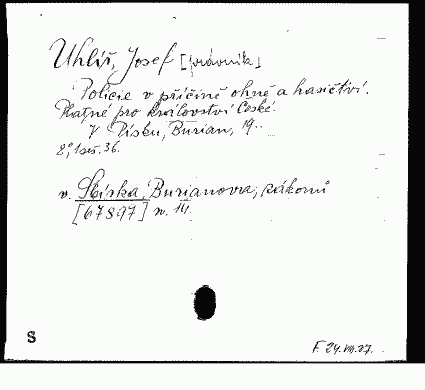 Uhlíř, Josef [právník]
Policie v příčině ohně a hasičství.
Platné pro království České.
V Písku, Burian, 19..
8°, 1 seš. 36.
v. Sbírka, Burianova, zákonů
[67897] n. 14.
S
F. 24.VIII.27.